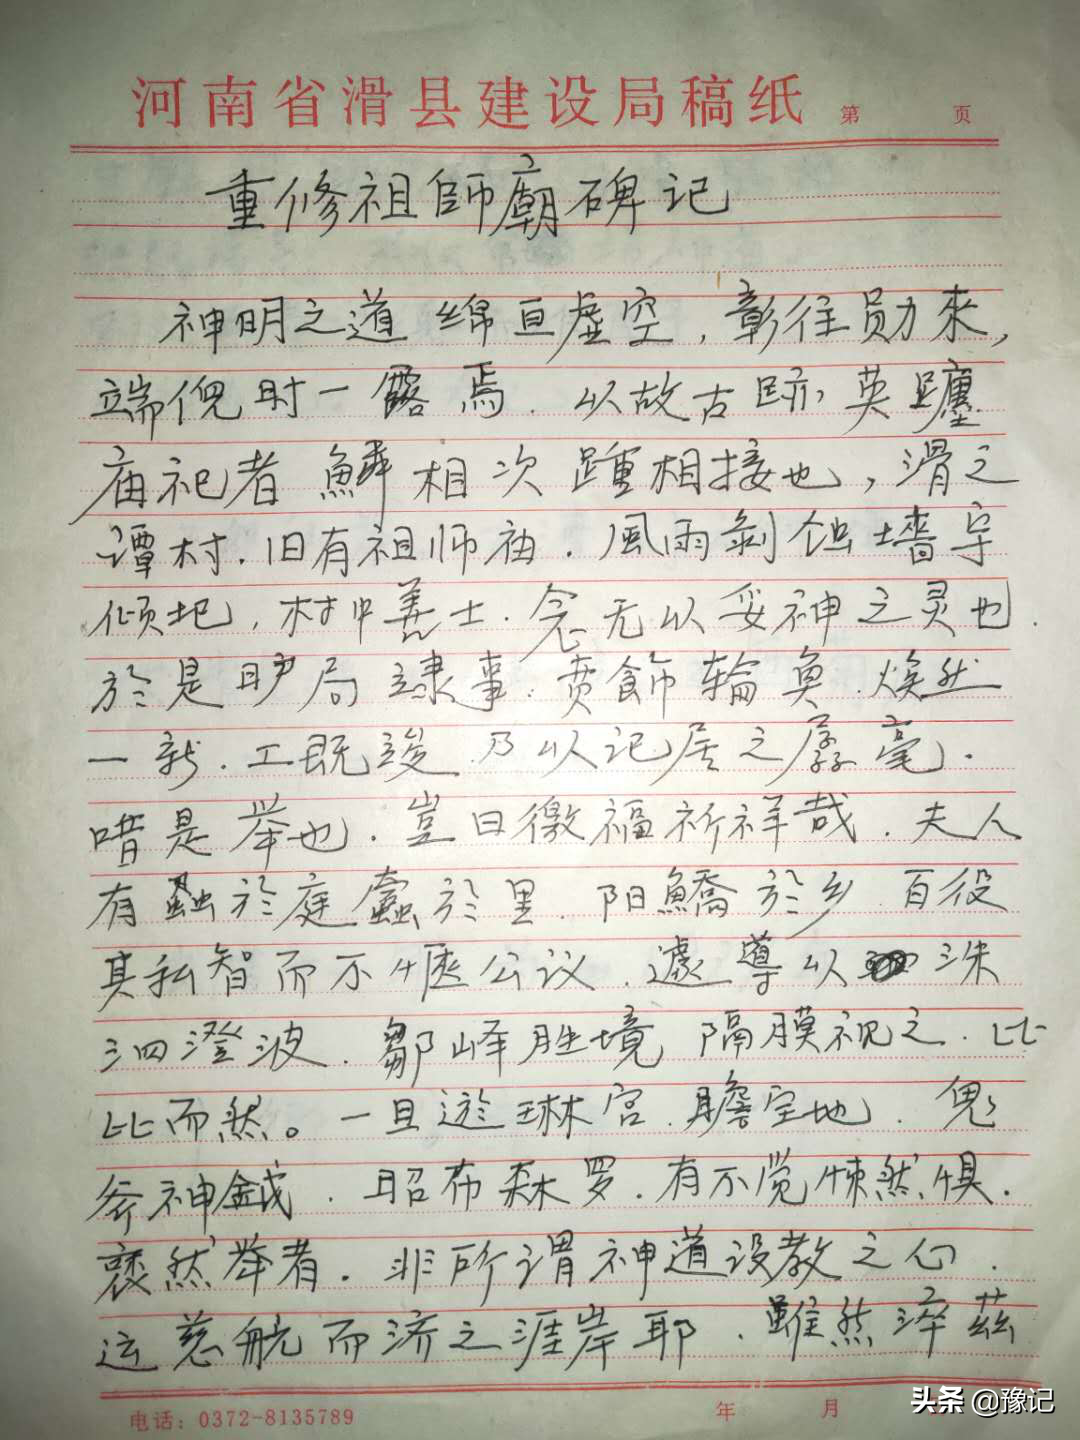 河南省滑县建设局稿纸 第 页
重修祖師廟碑记
神明之道 绵亘虚空，彰往 來，
端倪时一露焉．以故古跡英躔
庙祀者鱗相次踵相接也，滑之
谭村．旧有祖师庙．風雨剝蚀墙宇
倾圮，村中善士．念无以妥神之灵也．
於是 局 事．贲飾輪奐．焕然
一新．工既竣 乃以记居之孱毫．
唶是举也．豈曰徼福祈祥哉．夫人
有 於庭蠹於里．阳鱎於乡 百役
其私智而不惬公议．遽導以 洙
泗澄波．鄒峄胜境 隔膜视之．比
比而然。一旦遊琳宫．瞻宝地．鬼
斧神鉞．昭布森罗．有不觉悚然惧．
褎然举者．非所谓神道设教之心．
运慈航而济之涯岸耶．雖然泽茲
电话：0372-8135789 年 月
头条@豫记